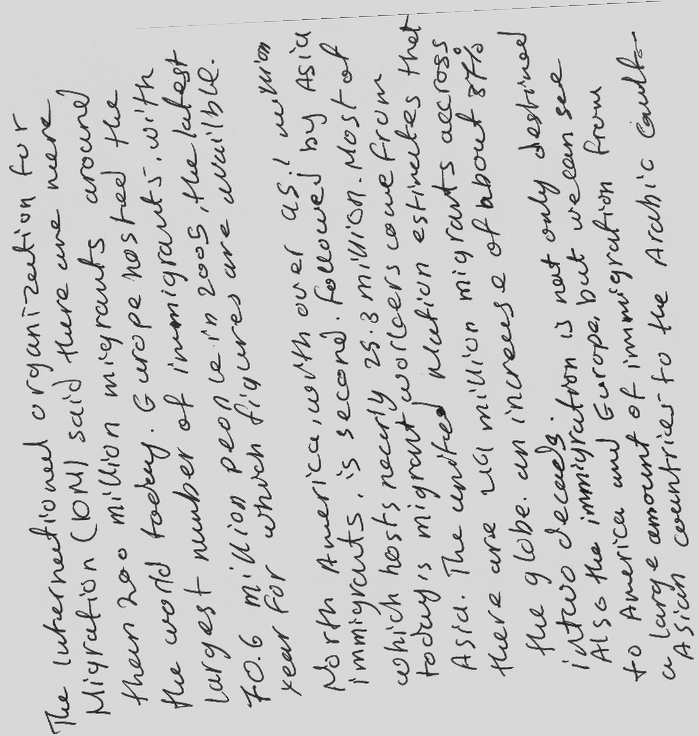 The international organization for
Migration (IOM) said there are more
than 200 million migrants around
the world today. Europe hosted the
largest number of immigrants, with
70.6 million people in 2005, the latest
year for which figures are availble.
North America, with over 45.1 million
immigrants, is second. Followed by Asia
which hosts nearly 25.3 million. Most of
today,s migrant workers come from
Asia. The united Nation estimates that
there are 214 million migrants accross
the globe. an increase of about 37%
intwo decads.
Also the immigration is not only destined
to America and Europe, but we can see
a large amount of immigration from
Asian countries to the Arabic Gault